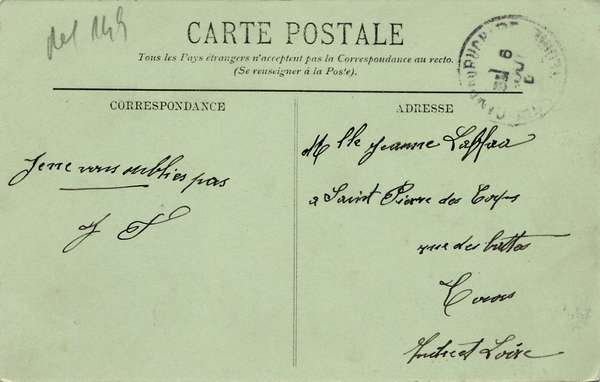 CARTE POSTALE
Tous les Pays étrangers n'acceptent pas la Correspondance au recto.
(Se renseigner à la Poste).
CORRESPONDANCE
Je ne vous oublies pas
J S
ADRESSE
Mlle Jeanne
a Saint Pierre des Corps
rue des
Tours
Indre et Loire